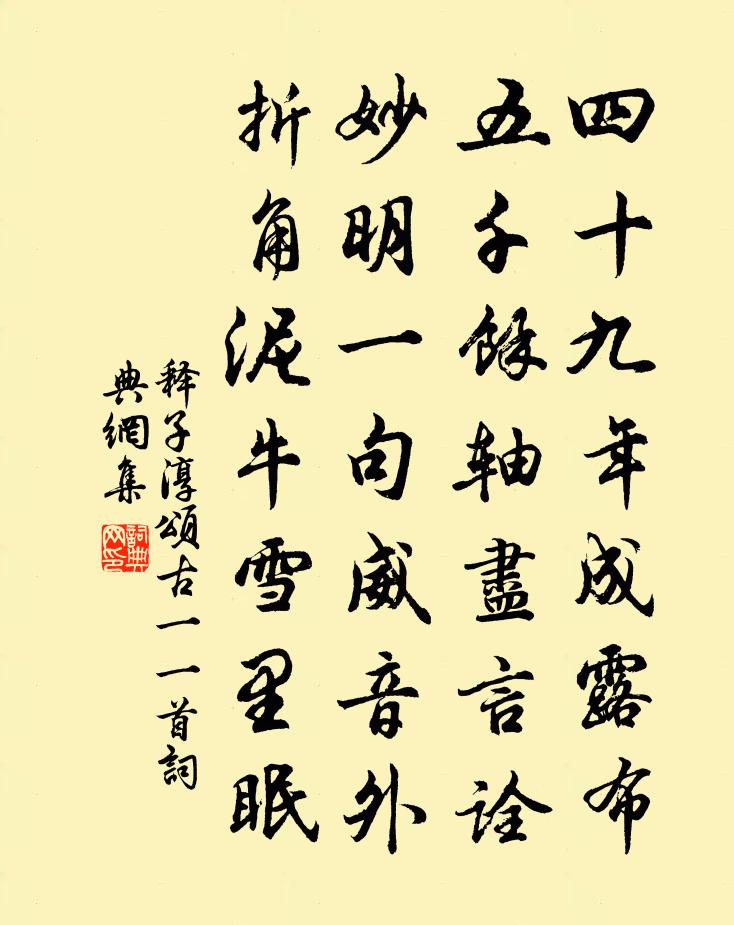 四十九年成露布
五千餘軸盡言詮
妙明一句威音外
折角泥牛雪里眠
释子淳頌古一一首詞
典網集
詞典
网印